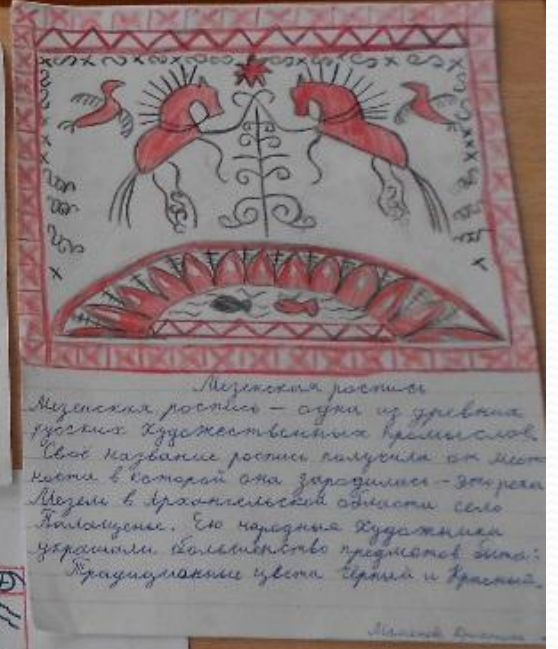 Мезенская роспись
Мезенская роспись – один из древних
русских художественных промыслов.
Своё название роспись получила от мест
ности в которой она зародилась – это река
Мезень в Архангельской области село
Палащелье. Ею народные художники
украшали большинство предметов быта:
Традиционные цвета Чёрный и Красный.